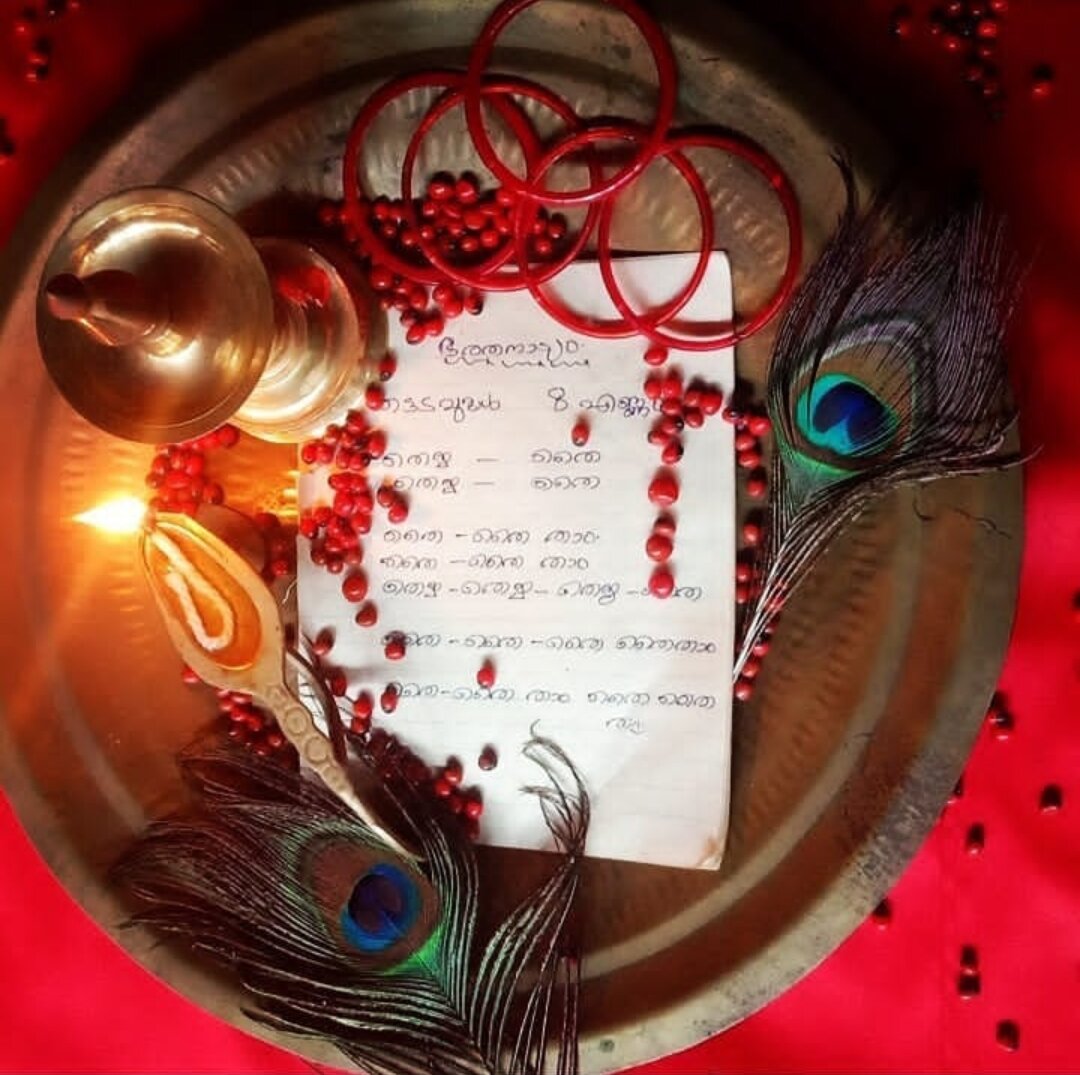 ഭരതനാട്യം
തട്ടടവുകൾ 8 എണ്ണം
തെയ്യ — തൈ
തെയ്യ — തൈ
തൈ - തൈ താം
തൈ - തൈ താം
തെയ്യ - തെയ്യ - തെയ്യ - തൈ
തൈ - തൈ - തൈ തൈതാം
തൈ - തൈ താം തൈ തൈ
താം